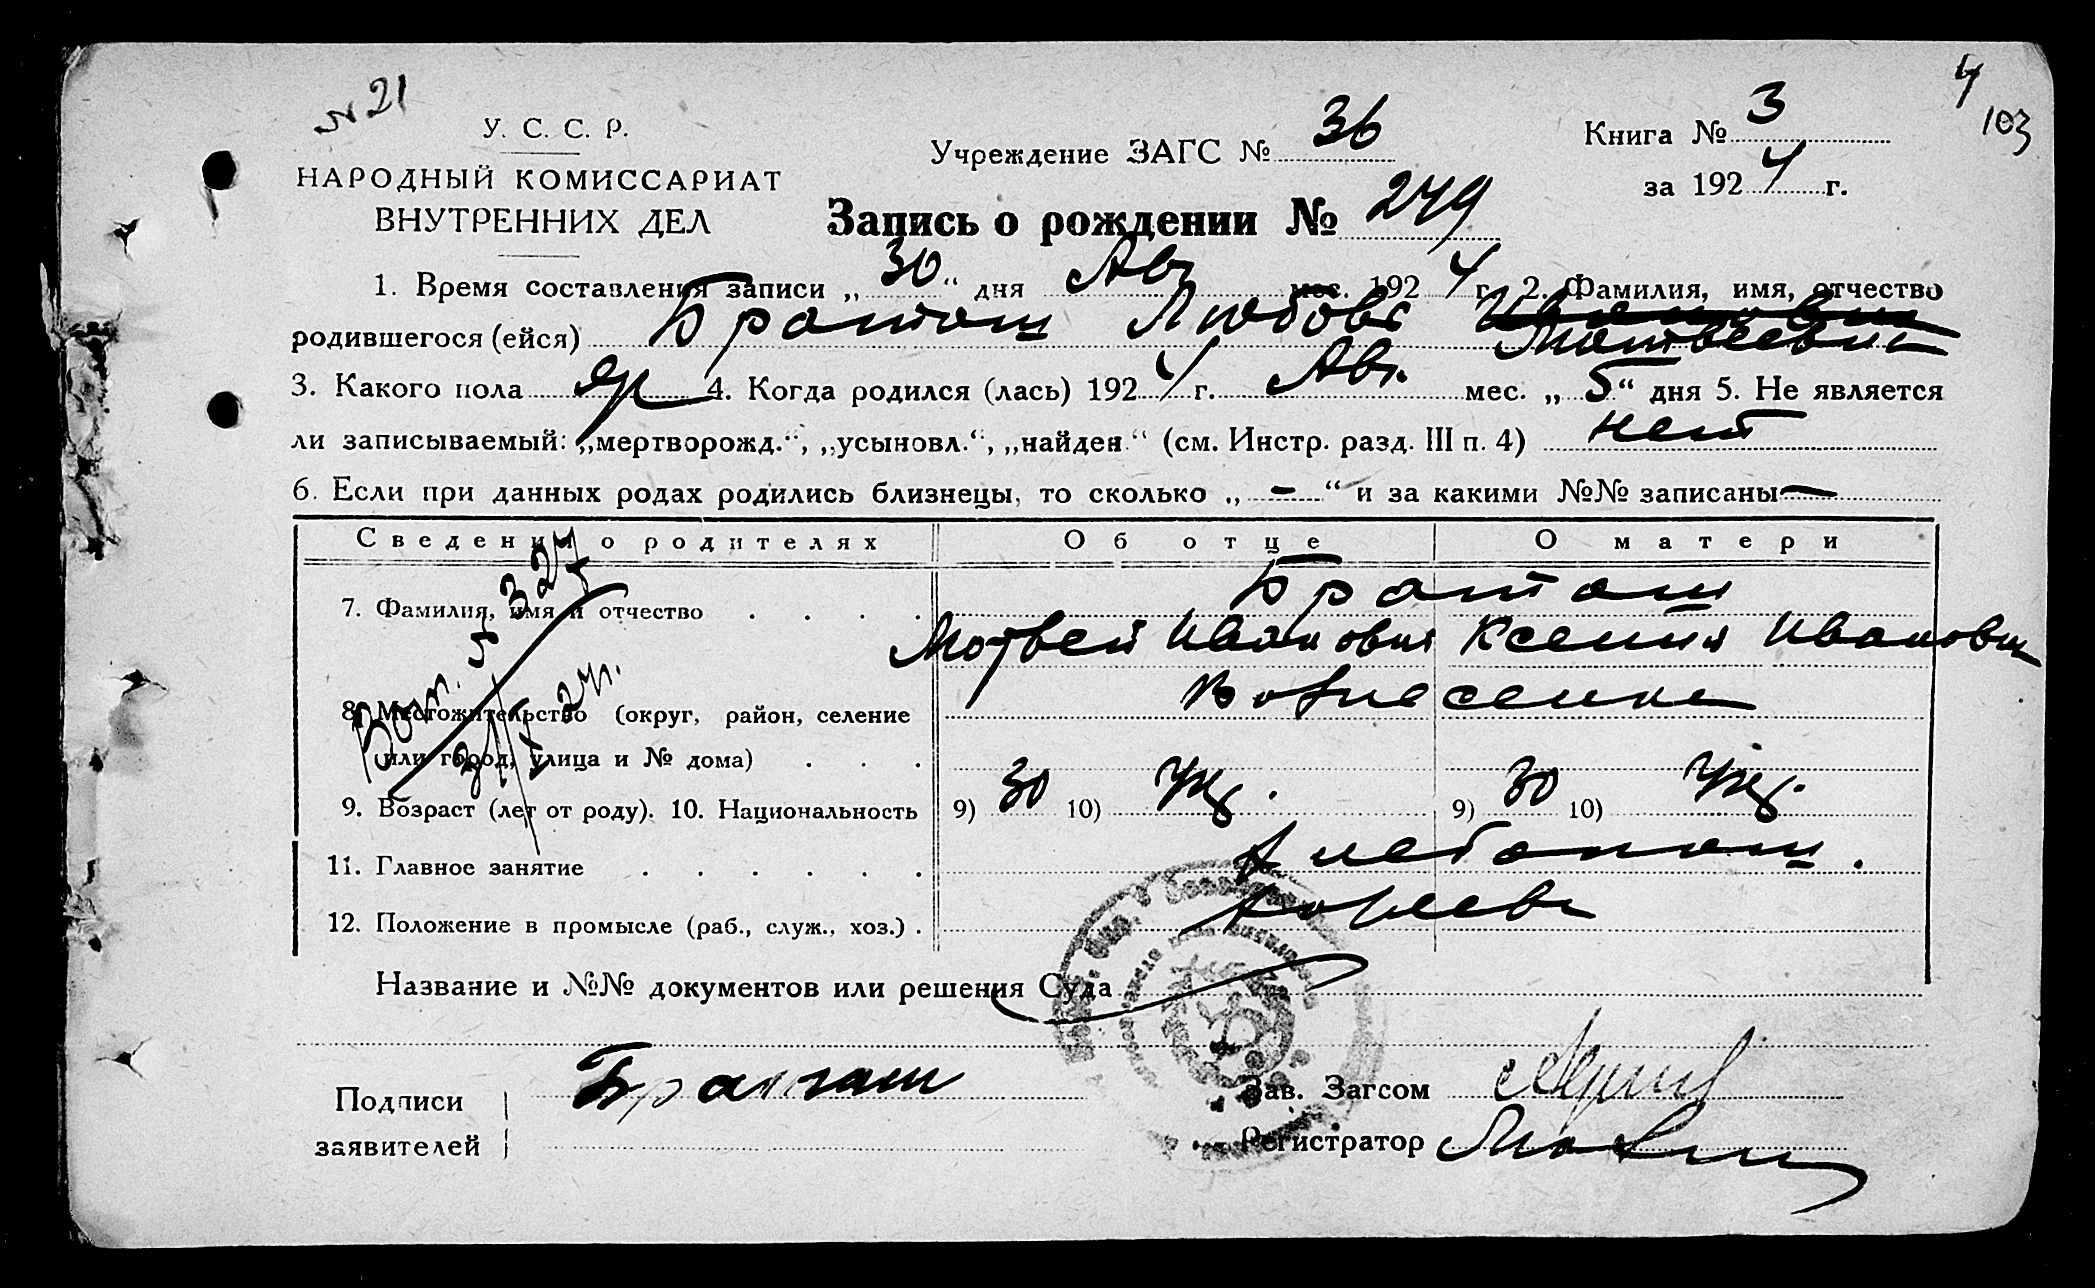 № 21
4
103
У. С. С. Р.
НАРОДНЫЙ КОМИССАРИАТ
ВНУТРЕННИХ ДЕЛ
Учреждение ЗАГС № 36
Книга № 3
за 1924 г.
Запись о рождении № 249
1. Время составления записи „30“ дня Авг мес. 1924 г. 2. Фамилия, имя, отчество
родившегося (ейся) Браташ Любовь Матвеевна
3. Какого пола 4. Когда родился (лась) 1924 г. Авг. мес. „5“ дня 5. Не является
ли записываемый: „мертворожд.“, „усыновл.“, „найден“ (см. Инстр. разд. III п. 4) нет
6. Если при данных родах родились близнецы, то сколько „ — “ и за какими №№ записаны —
Сведения о родителях Об отце О матери
7. Фамилия, имя и отчество . . . . Браташ
Матвей Иванович Ксения Ивановн
8. Местожительство (округ, район, селение Вознесенка
или город, улица и № дома) . . .
9. Возраст (лет от роду). 10. Национальность 9) 30 10) Укр. 9) 30 10) Укр.
11. Главное занятие . . . . . . Хлебопаш.
12. Положение в промысле (раб., служ., хоз.) . хозяева
Название и №№ документов или решения Суда
Подписи
заявителей
Браташ
Зав. Загсом
Регистратор